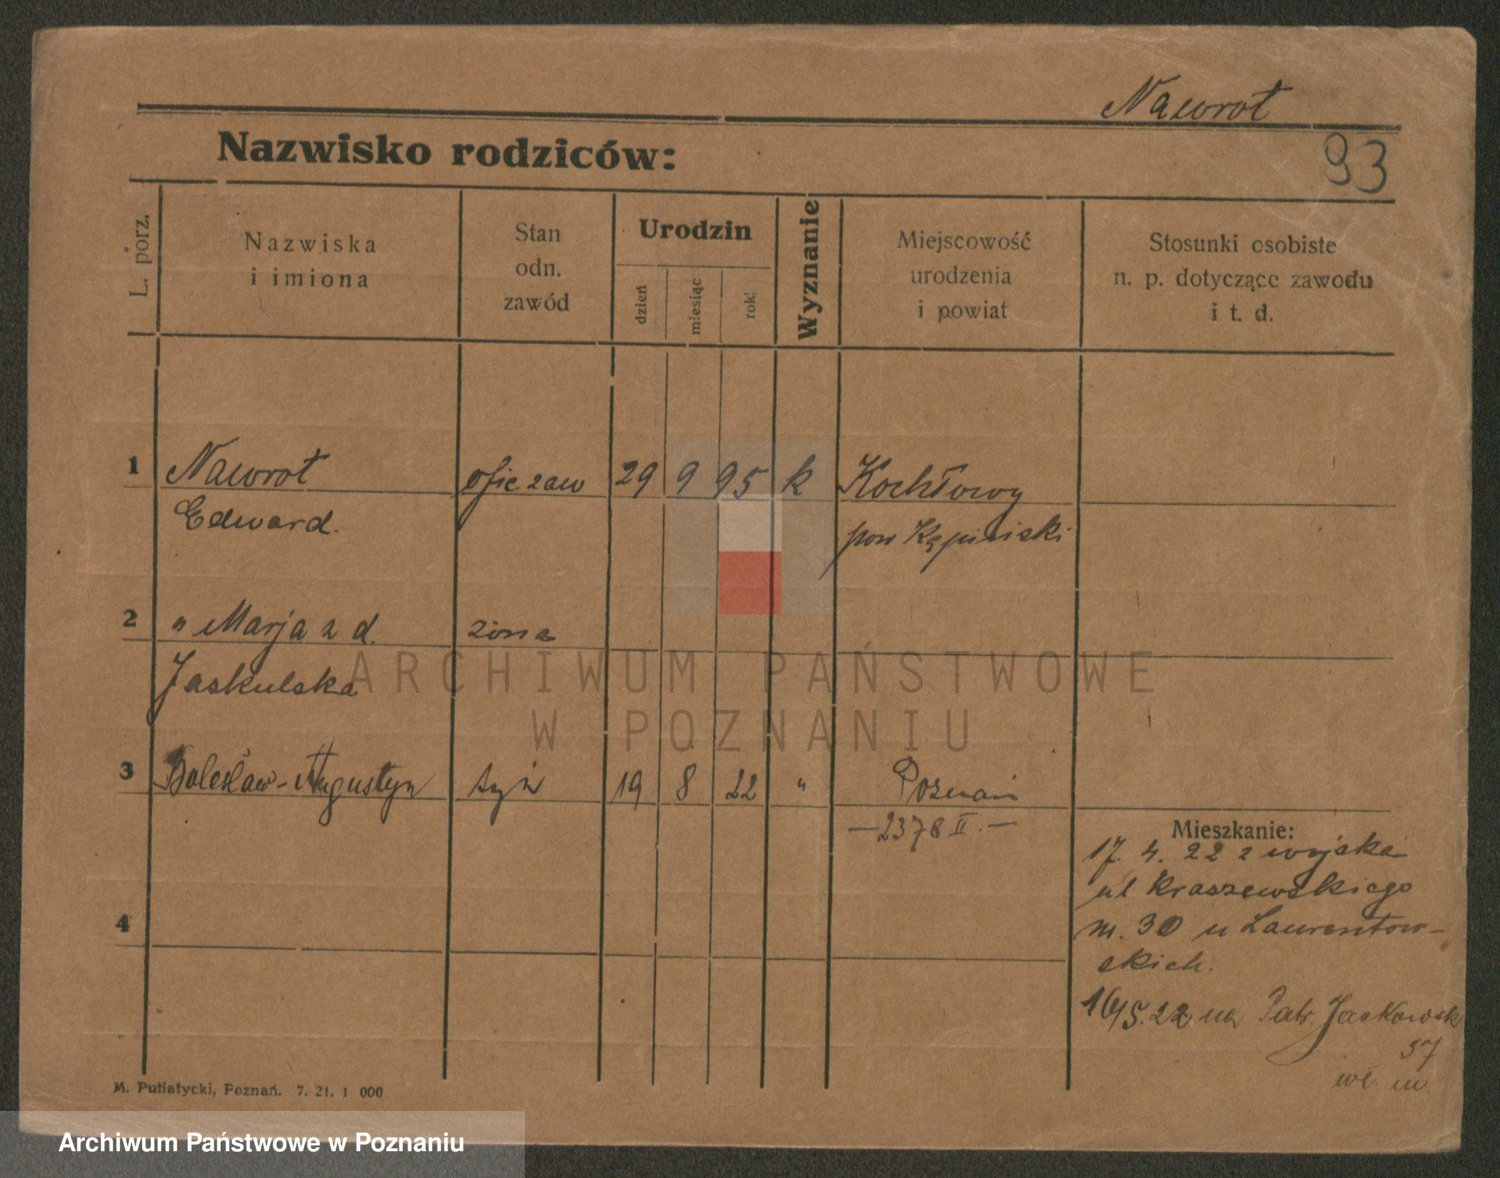 Nawrot
Nazwisko rodziców:
93
L. porz.
Nazwiska
i imiona
Stan
odn.
zawód
Urodzin
dzień
miesiąc
rok
Wyznanie
Miejscowość
urodzenia
i powiat
Stosunki osobiste
n. p. dotyczące zawodu
i t. d.
1 Nawrot ofic zaw 29 9 95 k Kochłowy
Edward. pow Kępiński
2 " Marja z d. żona
Jaskulska
ARCHIWUM PAŃSTWOWE
W POZNANIU
3 Bolesław-Augustyn syn 19 8 22 " Poznań
—2378 II.—
Mieszkanie:
17. 4. 22 z wojska
ul Kraszewskiego
m. 30 u Laurentow-
skich.
4
16/5.22 na Patr. Jackowsk
37
M. Putiatycki, Poznań. 7. 21. 1 000
Archiwum Państwowe w Poznaniu